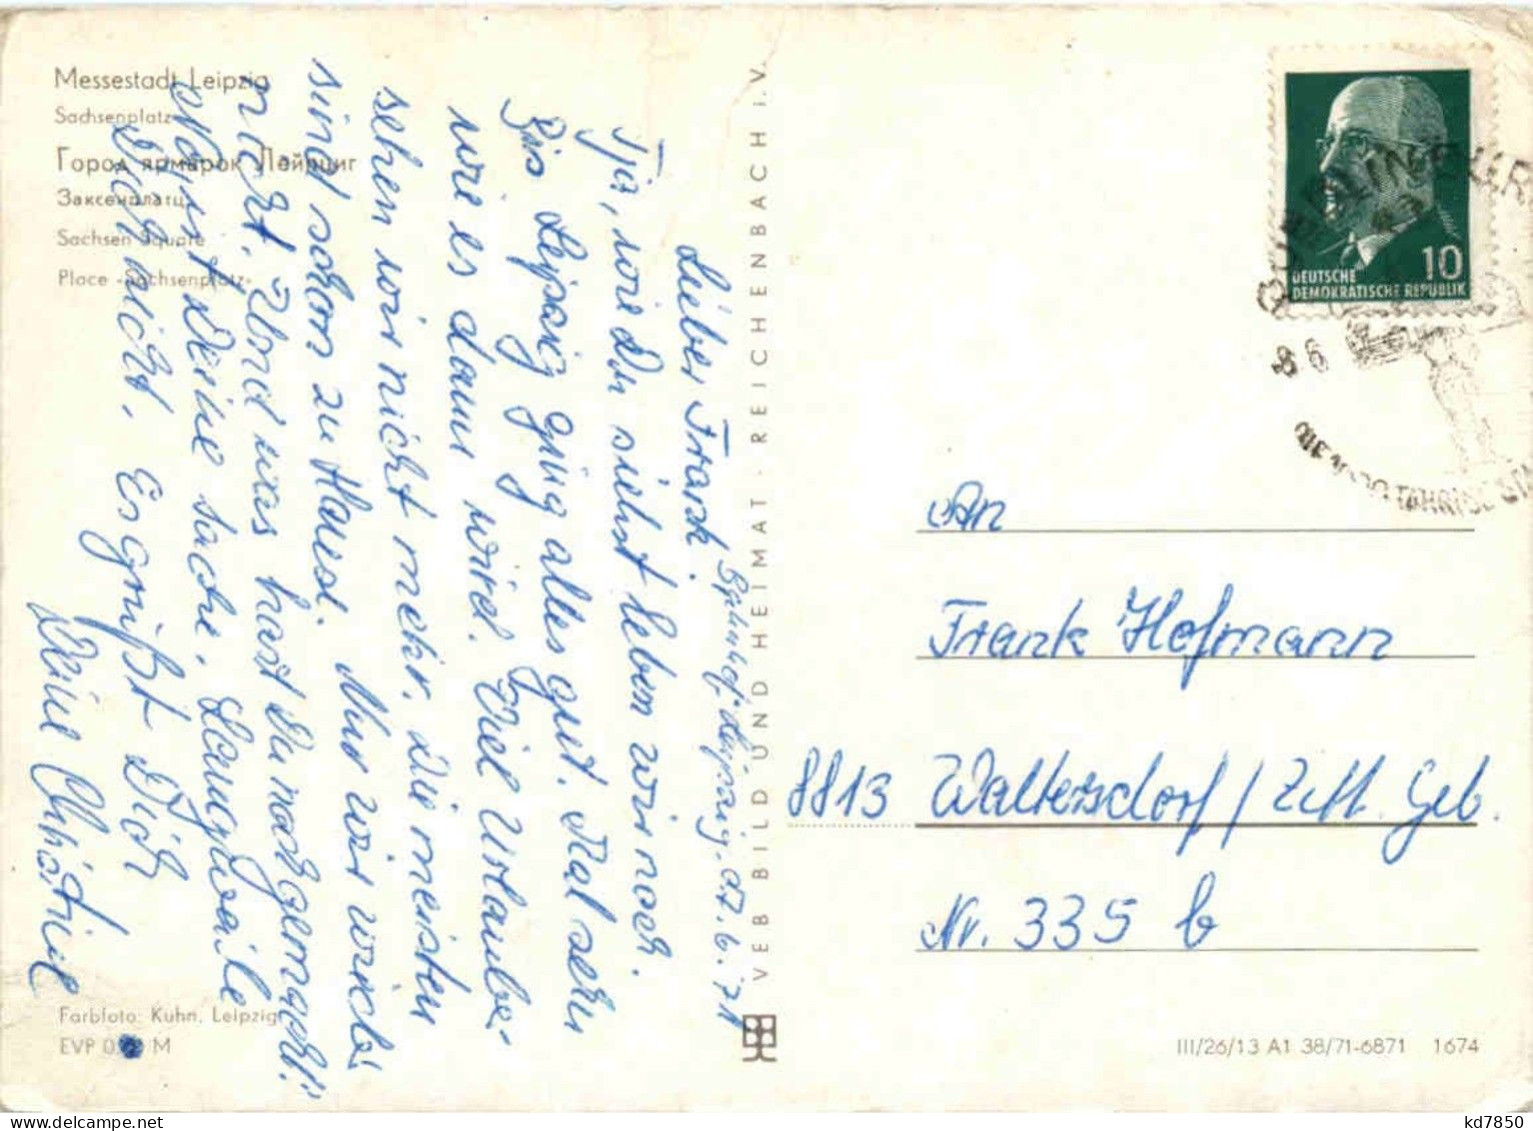 Messestadt Leipzig
Sachsenplatz
Город ярмарок Лейпциг
Заксенплатц
Sachsen Square
Place «Sachsenplatz»
Bahnhof Leipzig. d. 7.6.71
Lieber Frank.
Tja, wie Du siehst leben wir noch.
Bis Leipzig ging alles gut. Mal sehn
wie es dann wird. Viel Urlauber
sehen wir nicht mehr. Die meisten
sind schon zu Hause. Nur wir
nicht. Und was hast Du noch gemacht?
Nimm Deine Sache. Langweile
Dich nicht. Es grüßt Dich
Deine Christine
Farbfoto: Kuhn, Leipzig
EVP 0, M
VEB BILD UND HEIMAT · REICHENBACH i. V.
10
DEUTSCHE
DEMOKRATISCHE REPUBLIK
QUEDLINBURG
8 6
An
Frank Hofmann
8813 Waltersdorf / Zitt. Geb.
Nr. 335 b
III/26/13 A1 38/71-6871 1674
kd7850